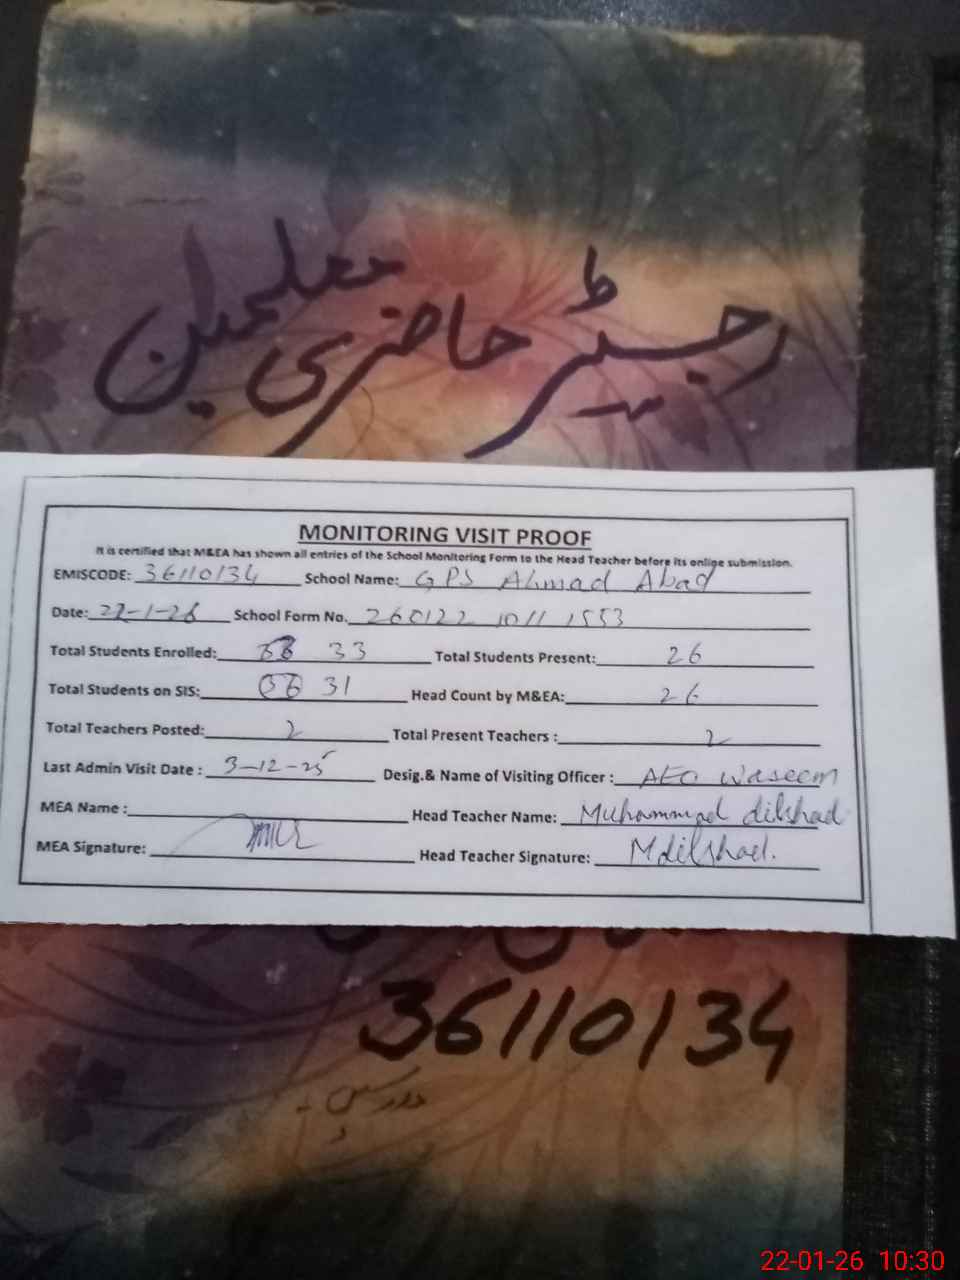 رجسٹر حاضری معلمین
MONITORING VISIT PROOF
It is certified that M&EA has shown all entries of the School Monitoring Form to the Head Teacher before its online submission.
EMISCODE: 36110134 School Name: GPS Ahmad Abad
Date: 22-1-26 School Form No. 260122 1011 1553
Total Students Enrolled: 33 Total Students Present: 26
Total Students on SIS: 31 Head Count by M&EA: 26
Total Teachers Posted: 2 Total Present Teachers : 2
Last Admin Visit Date : 3-12-25 Desig.& Name of Visiting Officer : AEO Waseem
MEA Name : Head Teacher Name: Muhammad dilshad
MEA Signature: Head Teacher Signature: Mdilshad.
36110134
22-01-26 10:30